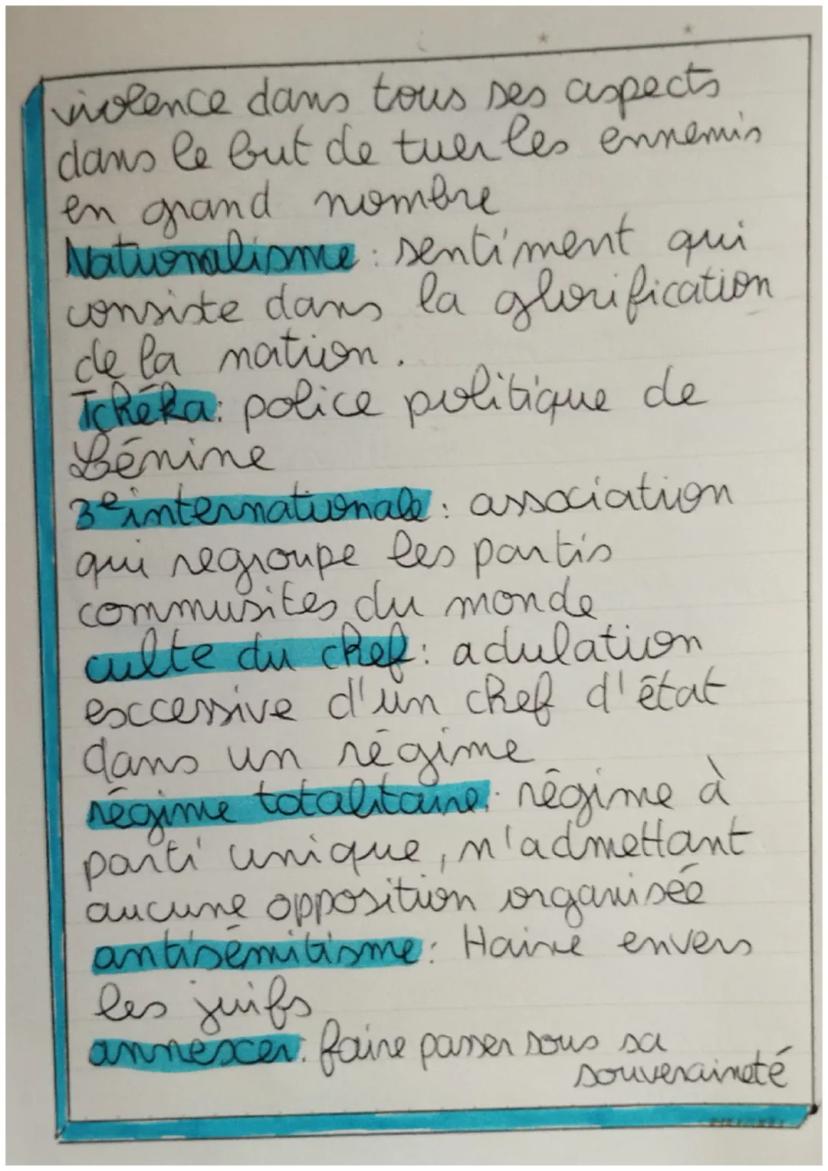 violence dans tous ses aspects
dans le but de tuer les ennemis
en grand nombre
Nationalisme : sentiment qui
consiste dans la glorification
de la nation.
Tchéka : police politique de
Lénine
3e internationale : association
qui regroupe les partis
commusites du monde
culte du chef : adulation
excessive d'un chef d'état
dans un régime
régime totalitaire : régime à
parti unique, n'admettant
aucune opposition organisée
antisémitisme : Haine envers
les juifs
annexer : faire passer sous sa
souveraineté